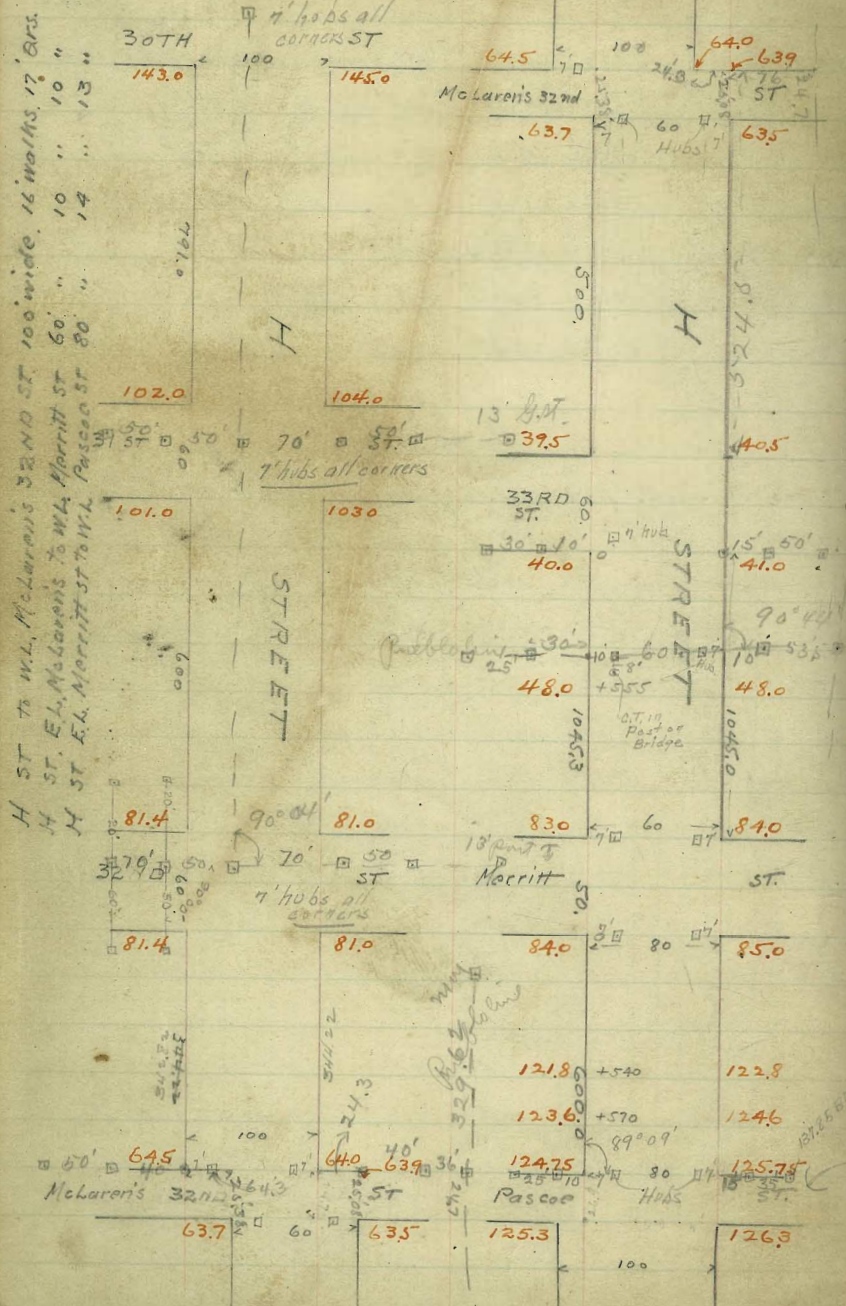 H ST to W.L. McLaren's 32ND ST. 100' wide. 16' walks. 17' Qrs.
H ST. E.L. McLaren's to W.L. Merritt ST 60' " 10 " 10 "
H ST E.L. Merritt ST to W.L. Pascoe ST 80' " 14 " 13 "
7' hubs all
corners
30TH
ST
100
143.0
145.0
H
102.0
104.0
31 ST
50'
50'
70'
50'
ST.
60
7' hubs all corners
101.0
103.0
600
STREET
81.4
81.0
90° 04'
20'
20'
32
70'
50'
70'
50
ST
60
7' hubs all
corners
81.4
81.0
344.22
24.3
100
64.5
64.0
63.9
50'
40'
7'
7'
40'
36'
McLaren's 32ND
ST
64.3
25.38
63.7
60
63.5
64.5
100
64.0
63.9
7'
24.3
76
34.7
McLaren's 32nd
ST
63.7
7
60
7'
63.5
Hubs
500.
H
324.8
13' G.M.
39.5
40.5
33RD
ST.
60.
7' hub
30'
10'
15'
50'
40.0
41.0
STREET
90° 44'
Pueblo line
25
30'
10
8'
60
7'
Hub
10'
53.5
48.0
+555
48.0
C.T. in
Post of
Bridge
1045.3
1045.0
83.0
60
84.0
7'
7'
13'
Merritt
ST.
50.
84.0
80
85.0
7'
7'
Pueblo line
329.62
24.7
121.8
+540
122.8
123.6
+570
124.6
600.0
89° 09'
124.75
80
125.75
25
10
7'
10
35
Pascoe
Hubs
ST.
125.3
126.3
100